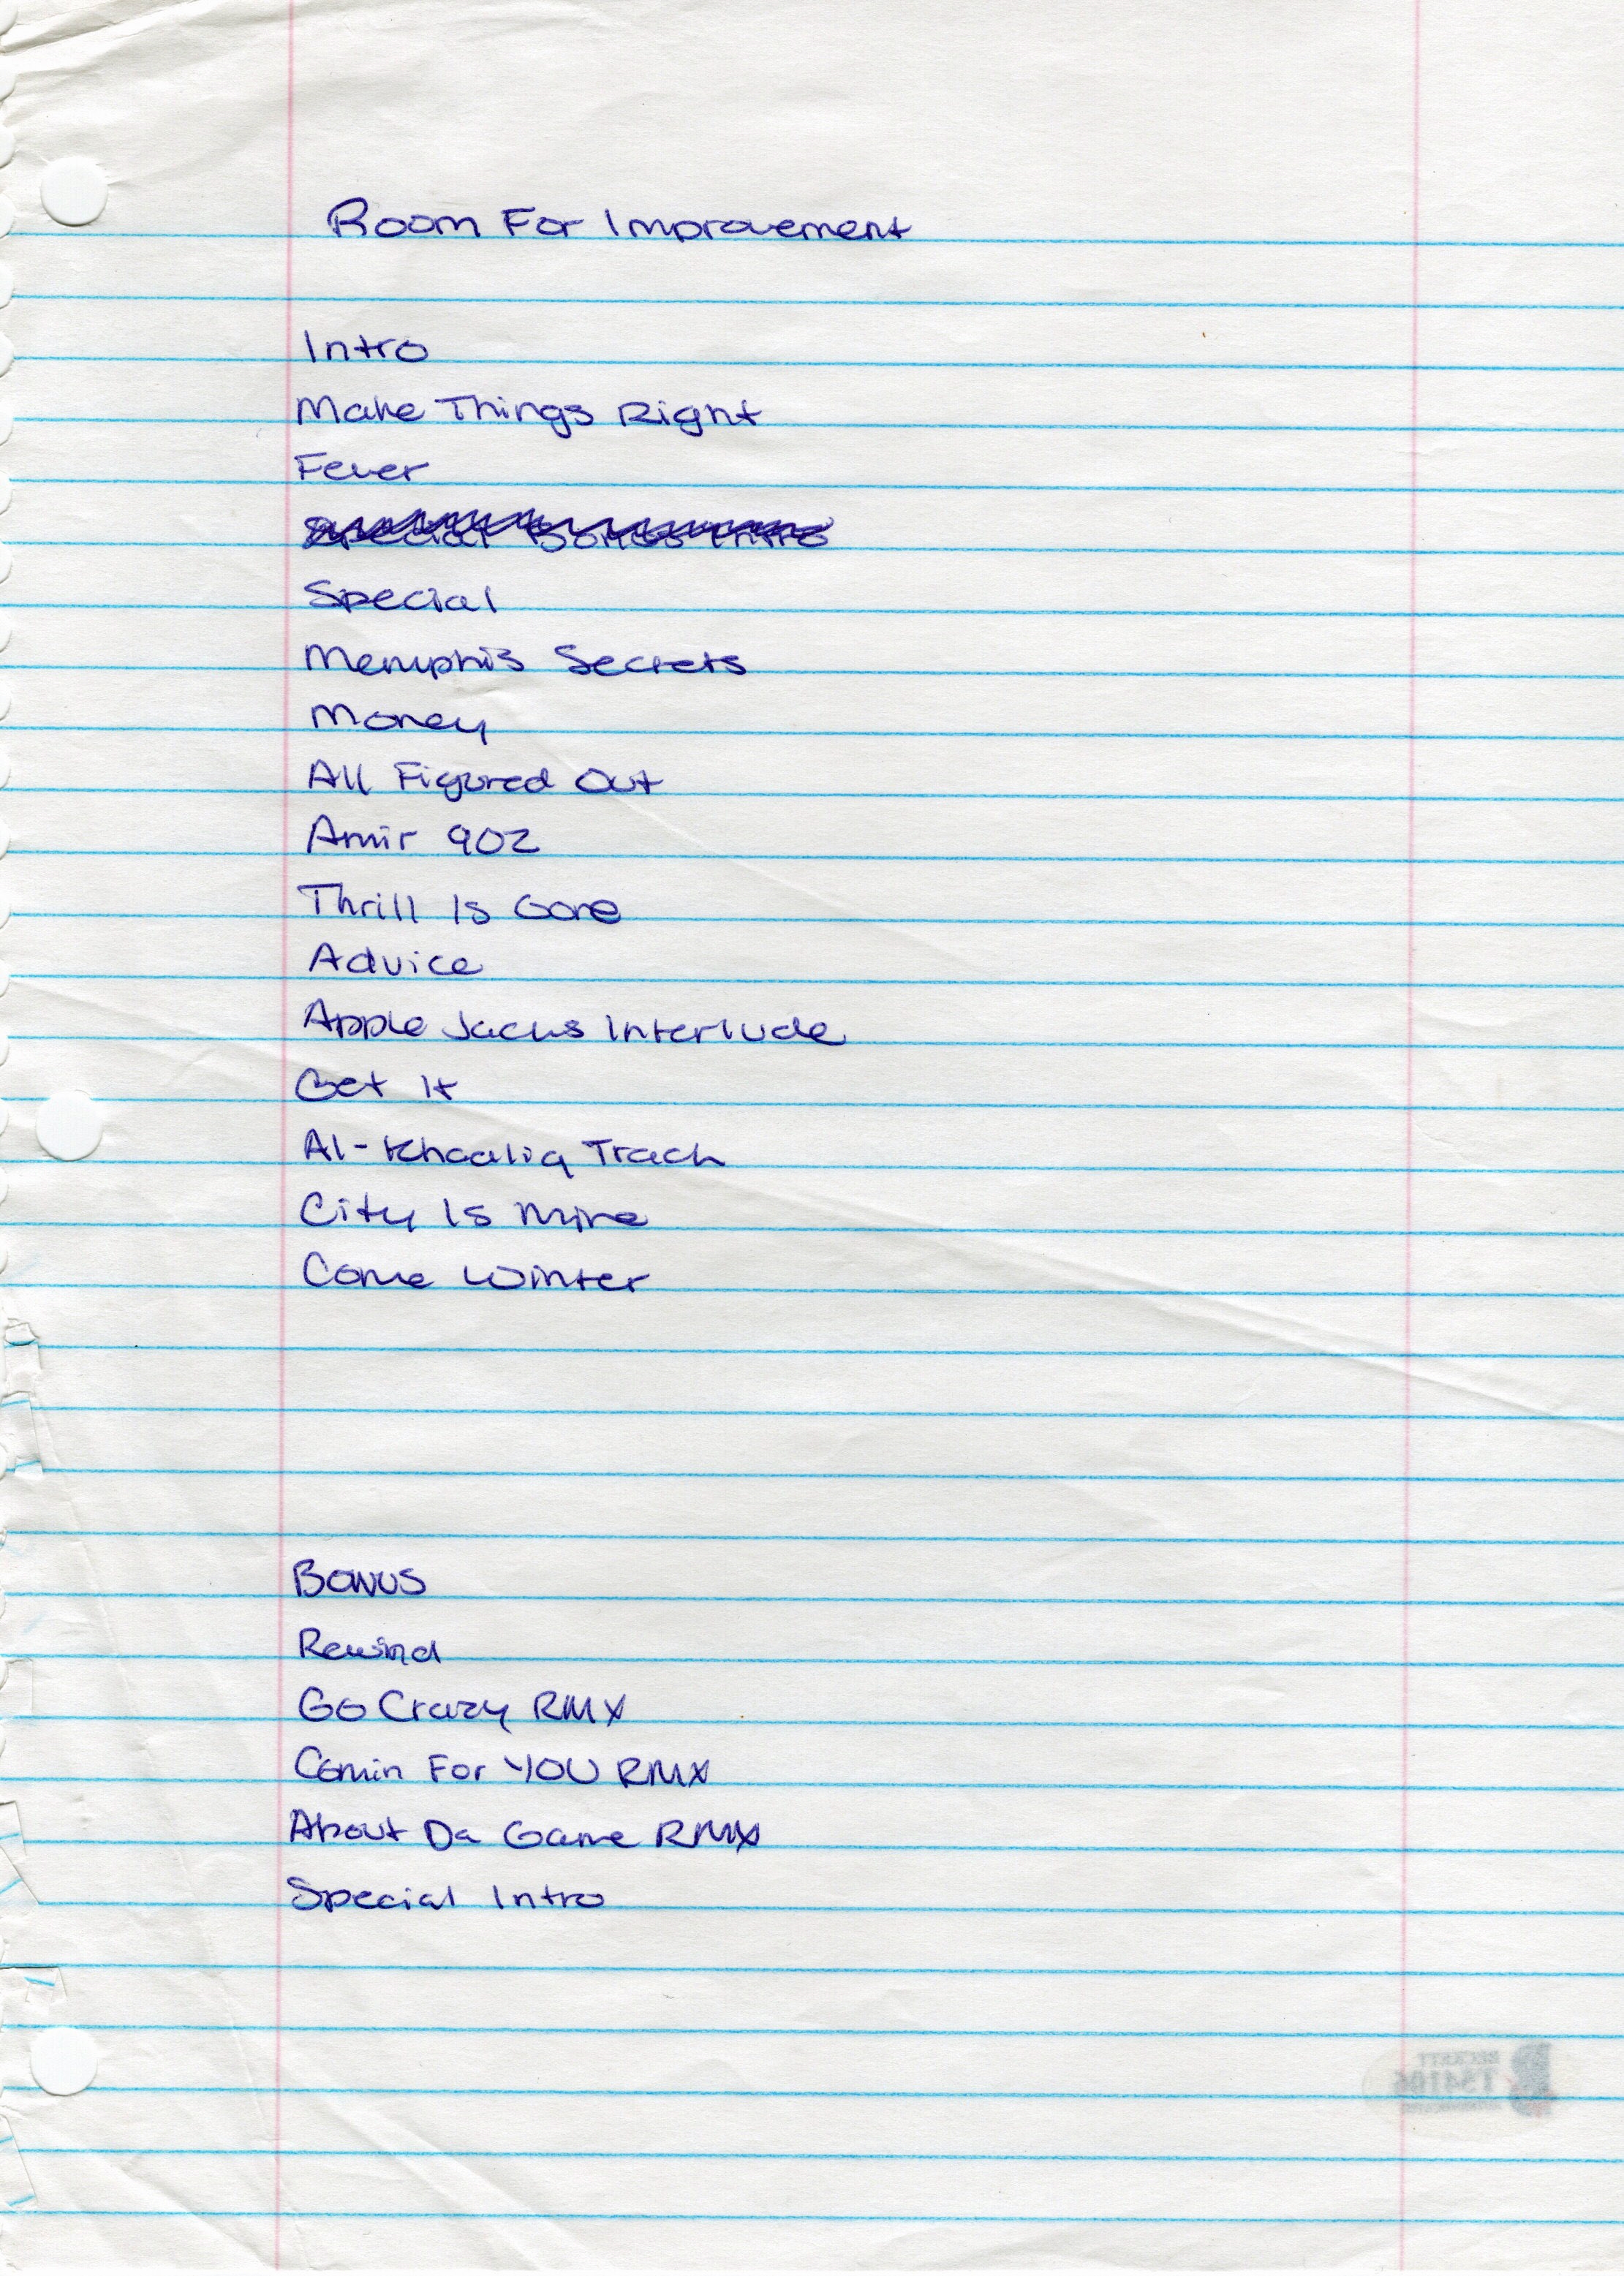 Room For Improvement
Intro
Make Things Right
Fever
Special Bonus Intro
Special
Memphis Secrets
Money
All Figured Out
Amir 902
Thrill Is Gone
Advice
Apple Jacks Interlude
Get It
Al-Khaaliq Track
City Is Mine
Come Winter
Bonus
Rewind
Go Crazy RMX
Comin For YOU RMX
About Da Game RMX
Special Intro
BECKETT